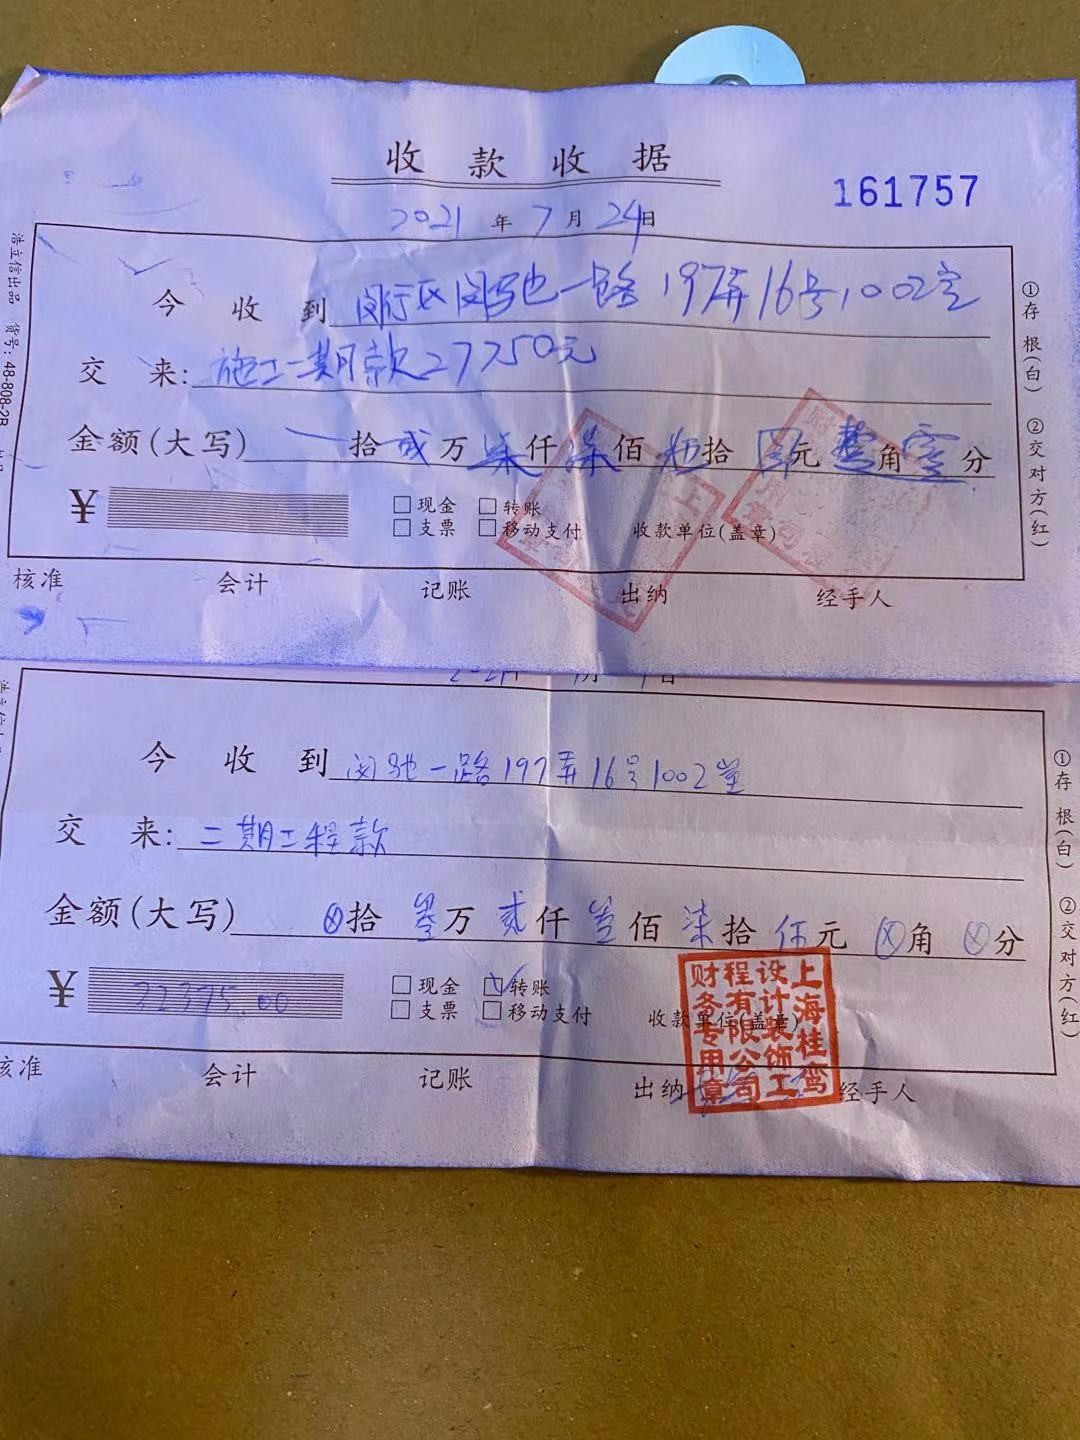 收款收据
161757
2021年7月24日
今收到 闵行区闵驰一路197弄16号1002室
交来: 施工一期款27750元
金额(大写) 拾 贰万 柒仟 柒佰 拾 元 整角 零分
¥
□现金 □转账
□支票 □移动支付 收款单位(盖章)
核准 会计 记账 出纳 经手人
浩立信出品 货号:48-808-2B
①存根(白) ②交对方(红)
今收到 闵驰一路197弄16号1002室
交来: 二期工程款
金额(大写) ⊗拾 叁万 贰仟 叁佰 柒拾 伍元 ⊗角 ⊗分
¥ 32375.00
□现金 □转账
□支票 □移动支付 收款单位(盖章)
上海桂鸾
设计装饰工
程有限公司
财务专用章
核准 会计 记账 出纳 经手人
①存根(白) ②交对方(红)